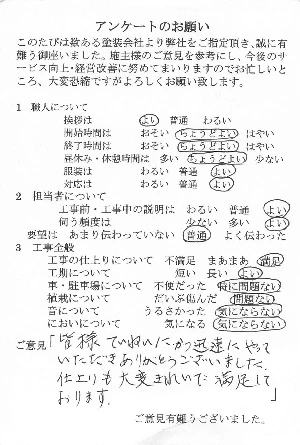 アンケートのお願い
このたびは数ある塗装会社より弊社をご指定頂き、誠に有
難う御座いました。施主様のご意見を参考にし、今後のサ
ービス向上・経営改善に努めてまいりますのでお忙しいと
ころ、大変恐縮ですがよろしくお願い致します。
1 職人について
挨拶は よい 普通 わるい
開始時間は おそい ちょうどよい はやい
終了時間は おそい ちょうどよい はやい
昼休み・休憩時間は 多い ちょうどよい 少ない
服装は わるい 普通 よい
対応は わるい 普通 よい
2 担当者について
工事前・工事中の説明は わるい 普通 よい
伺う頻度は 少ない 多い よい
要望は あまり伝わっていない 普通 よく伝わった
3 工事全般
工事の仕上りについて 不満足 まあまあ 満足
工期について 短い 長い よい
車・駐車場について 不便だった 特に問題ない
植栽について だいぶ傷んだ 問題ない
音について うるさかった 気にならない
においについて 気になる 気にならない
ご意見「皆様ていねいにかつ迅速にやって
いただきありがとうございました。
仕上りも大変きれいで満足して
おります。」
ご意見有難うございました。